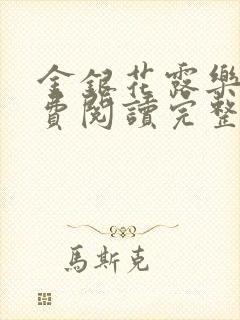 金銀花露樂
費閱讀完整
馬斯克